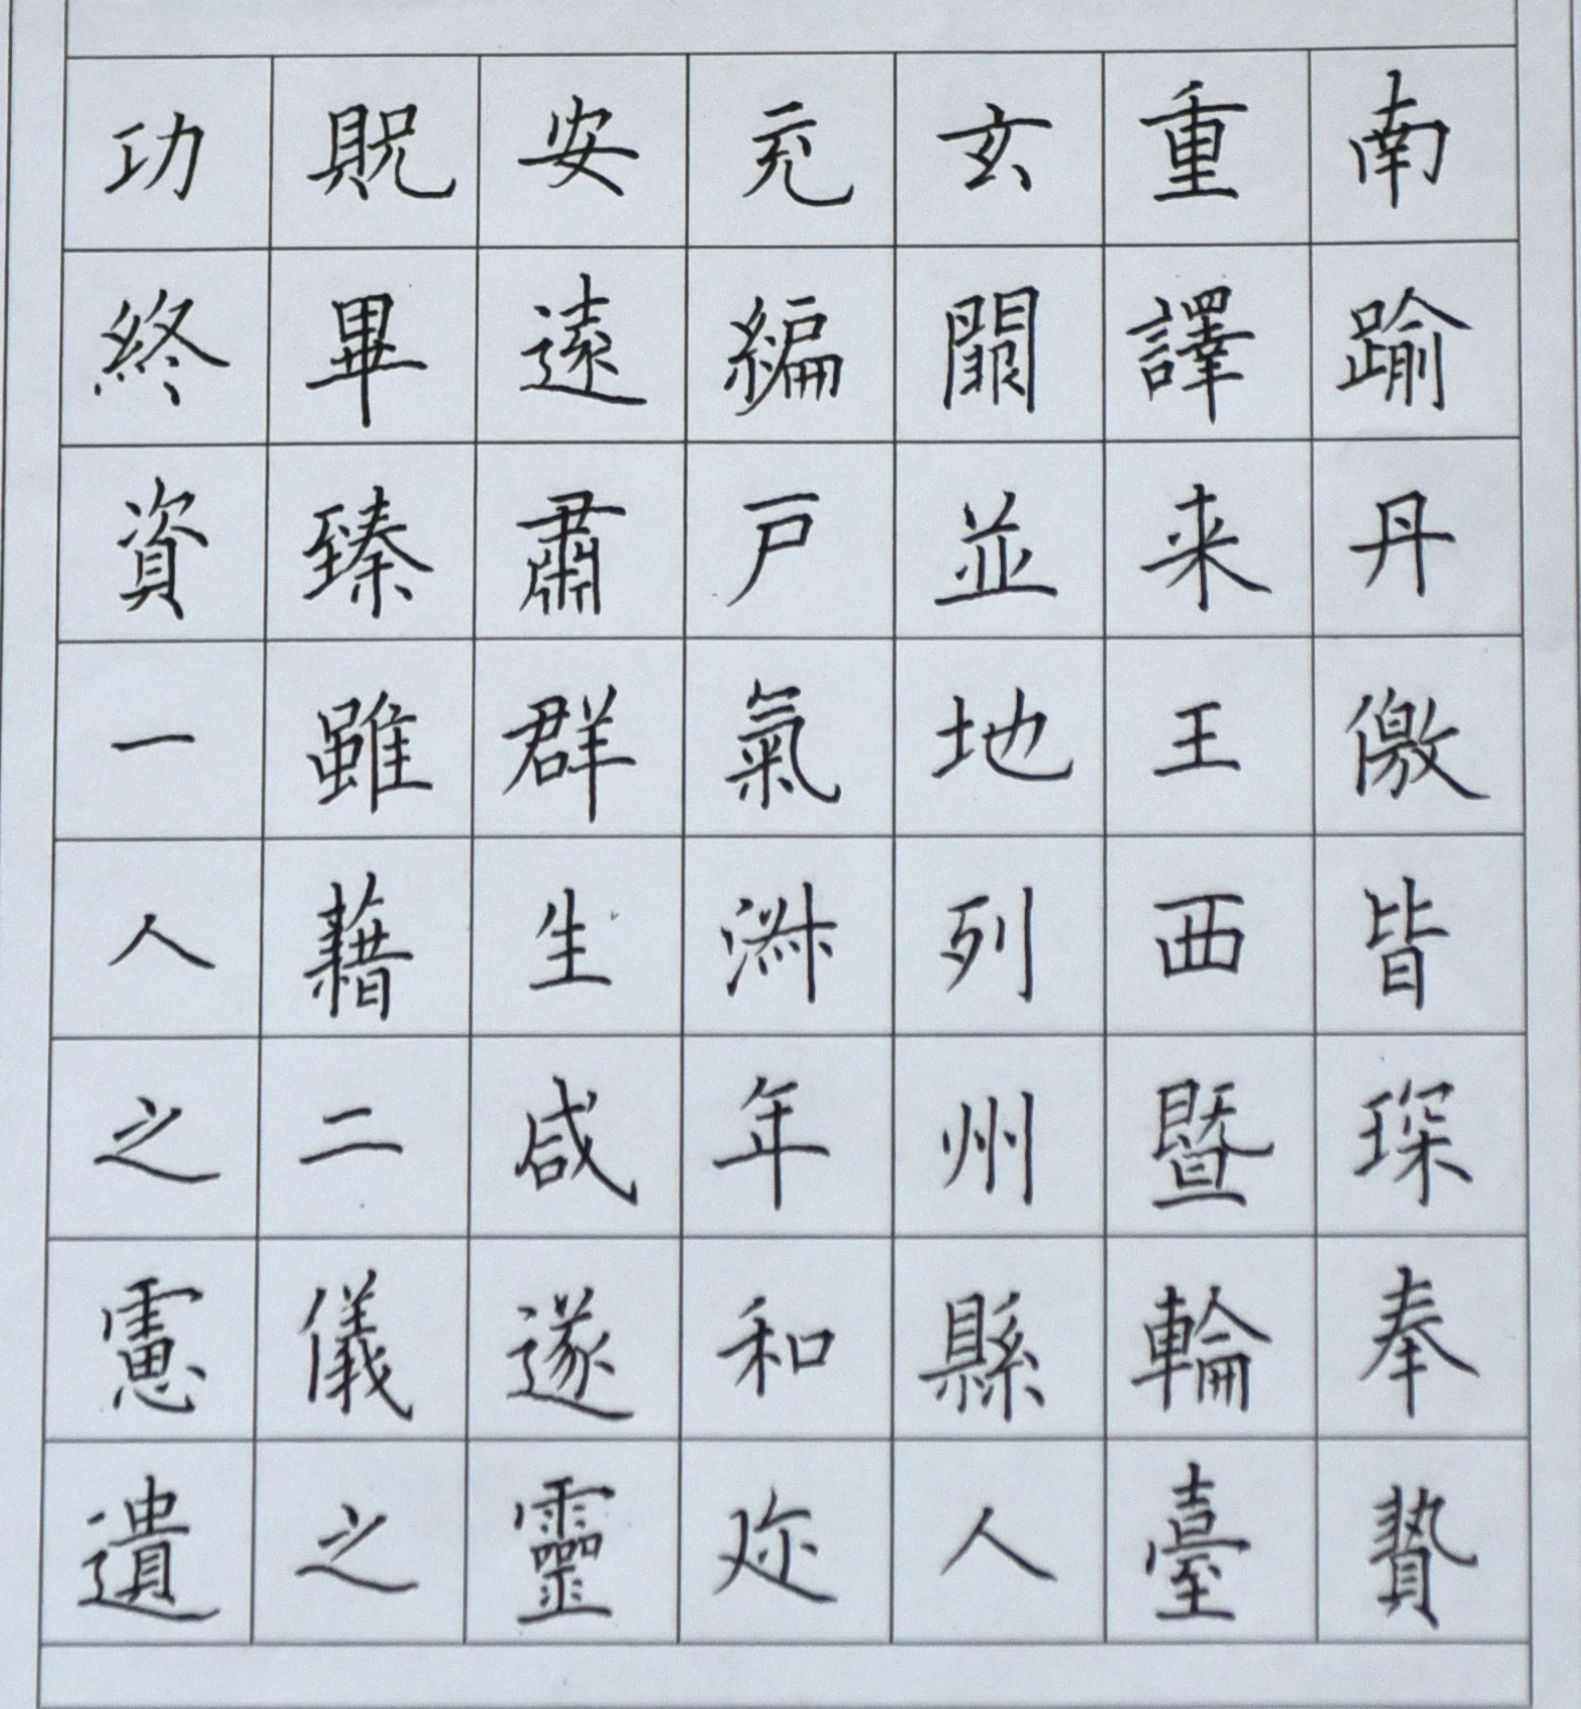 南踰丹儌皆琛奉贄
重譯来王西暨輪臺
玄闕並地列州縣人
充編戸氣淋年和迩
安遠肅群生咸遂靈
貺畢臻雖藉二儀之
功終資一人之慮遺